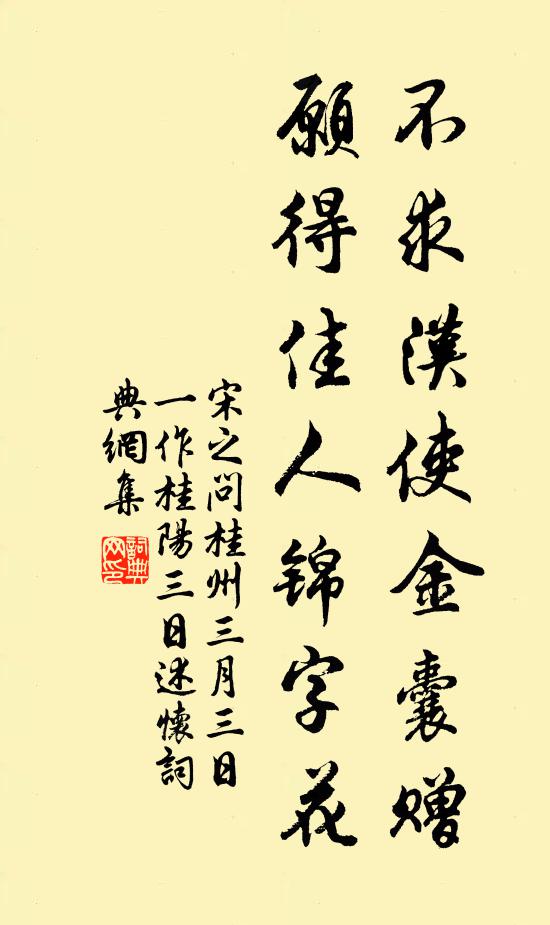 不求漢使金囊贈
願得佳人锦字花
宋之问桂州三月三日
一作桂陽三日述懷詞
典網集
詞典网印